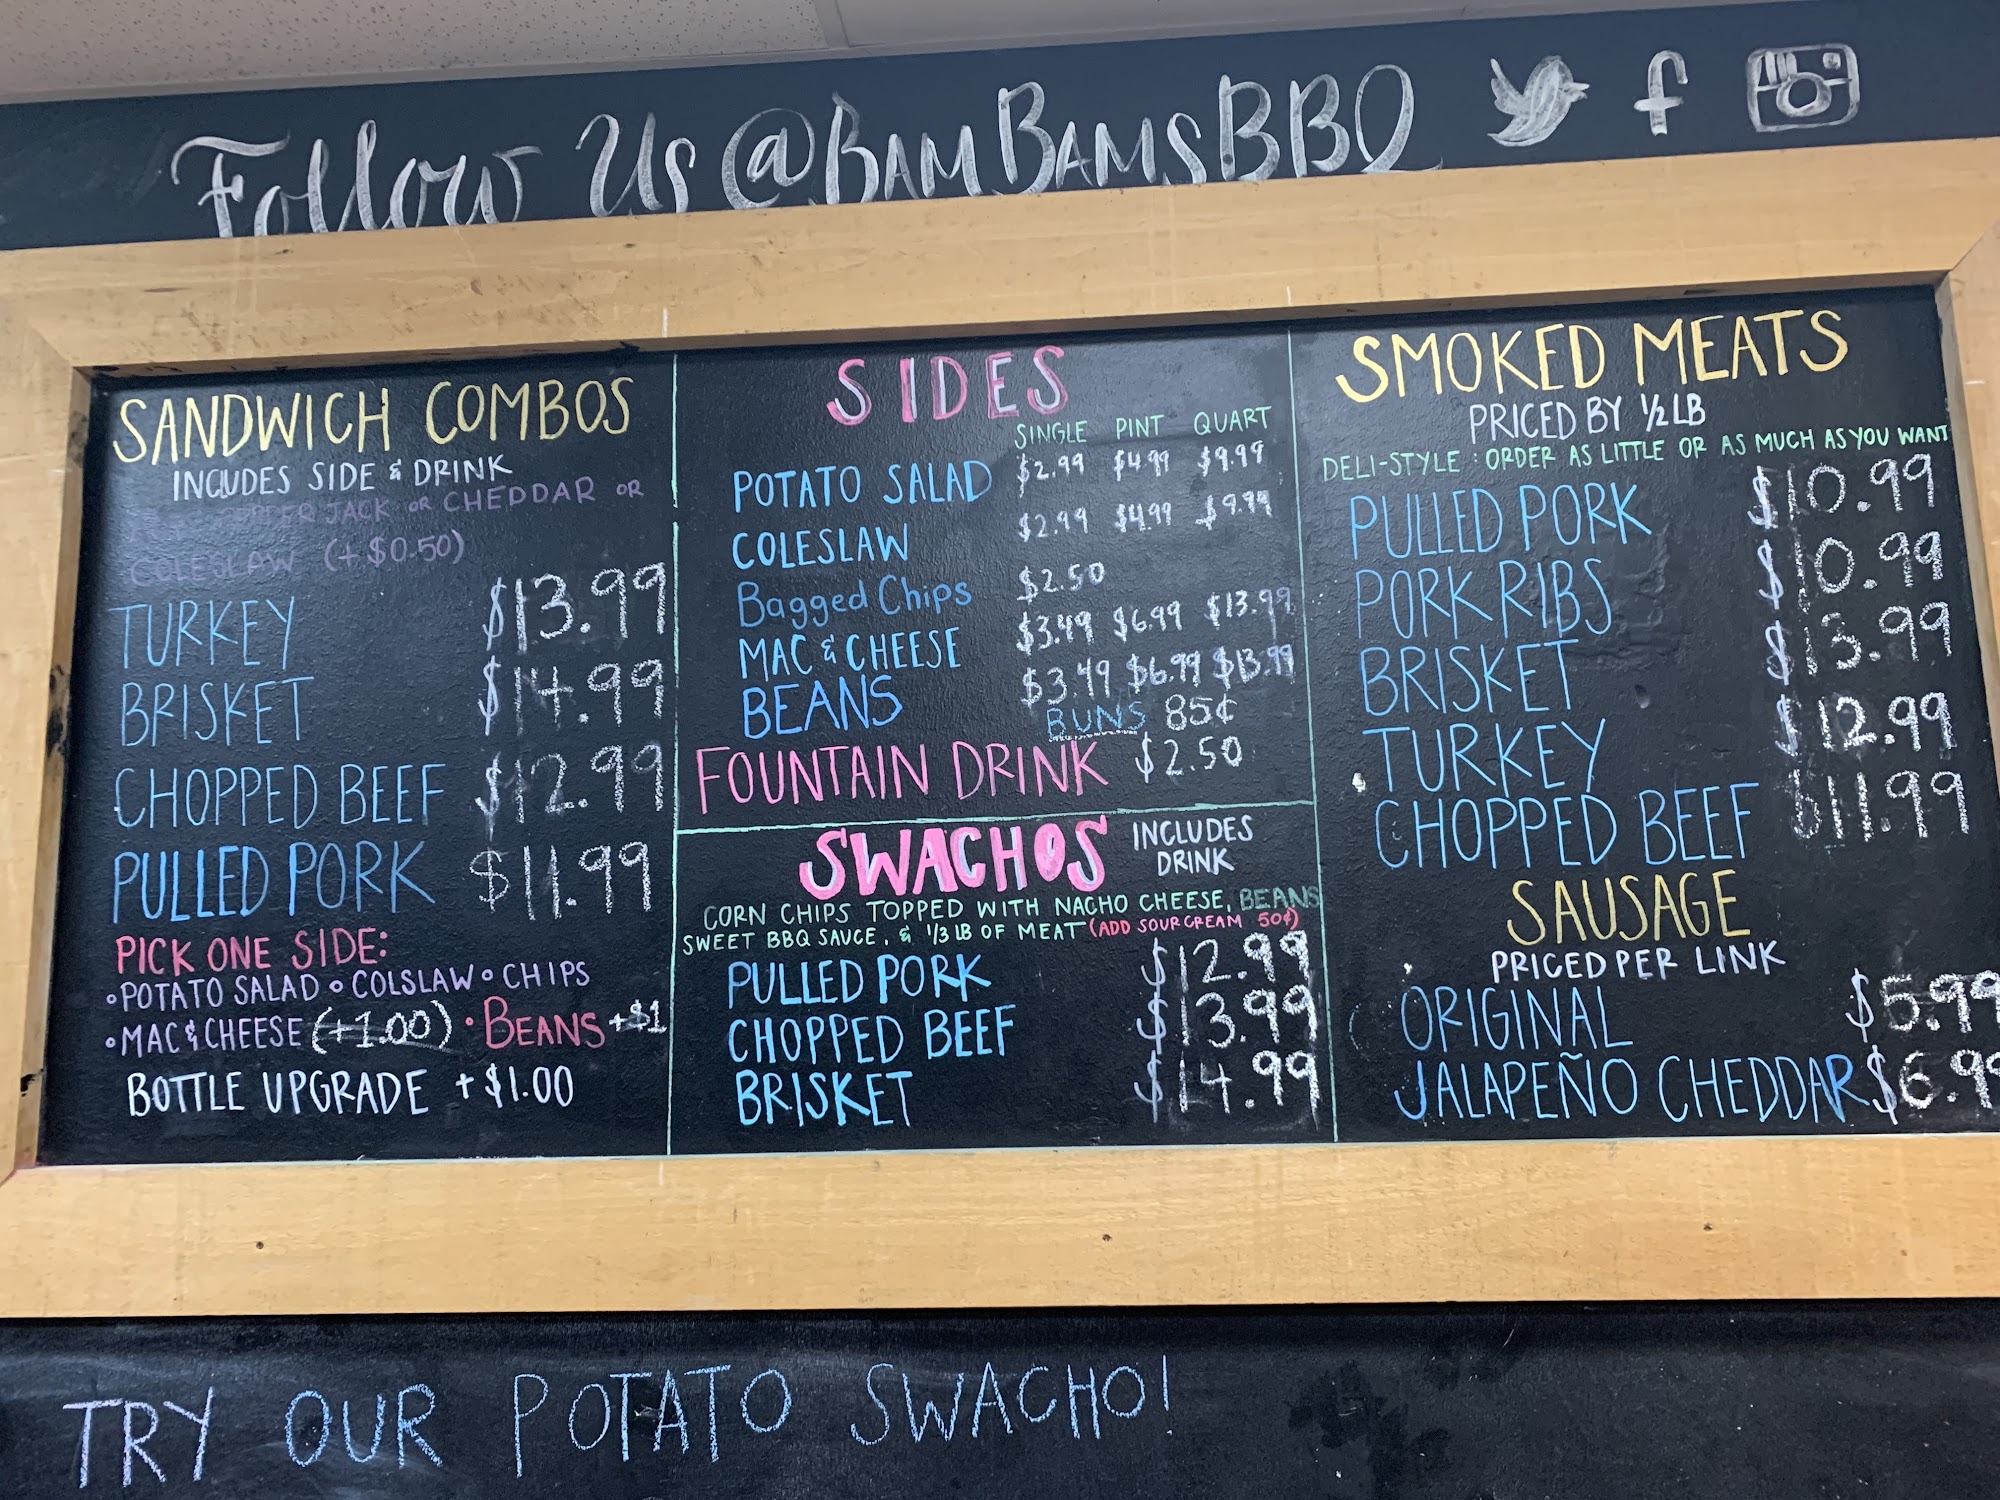 Follow Us @BamBamsBBQ f
SANDWICH COMBOS
INCLUDES SIDE & DRINK
JACK OR CHEDDAR OR
COLESLAW (+$0.50)
TURKEY $13.99
BRISKET $14.99
CHOPPED BEEF $12.99
PULLED PORK $11.99
PICK ONE SIDE:
•POTATO SALAD •COLSLAW •CHIPS
•MAC & CHEESE (+1.00) •BEANS +$1
BOTTLE UPGRADE +$1.00
SIDES
SINGLE PINT QUART
POTATO SALAD $2.99 $4.99 $9.99
COLESLAW $2.99 $4.99 $9.99
Bagged Chips $2.50
MAC & CHEESE $3.49 $6.99 $13.99
BEANS $3.49 $6.99 $13.99
BUNS 85¢
FOUNTAIN DRINK $2.50
SWACHOS INCLUDES
DRINK
CORN CHIPS TOPPED WITH NACHO CHEESE, BEANS
SWEET BBQ SAUCE, & 1/3 LB OF MEAT (ADD SOUR CREAM 50¢)
PULLED PORK $12.99
CHOPPED BEEF $13.99
BRISKET $14.99
SMOKED MEATS
PRICED BY 1/2 LB
DELI-STYLE: ORDER AS LITTLE OR AS MUCH AS YOU WANT
PULLED PORK $10.99
PORK RIBS $10.99
BRISKET $13.99
TURKEY $12.99
CHOPPED BEEF $11.99
SAUSAGE
PRICED PER LINK
ORIGINAL $5.99
JALAPEÑO CHEDDAR $6.99
TRY OUR POTATO SWACHO!